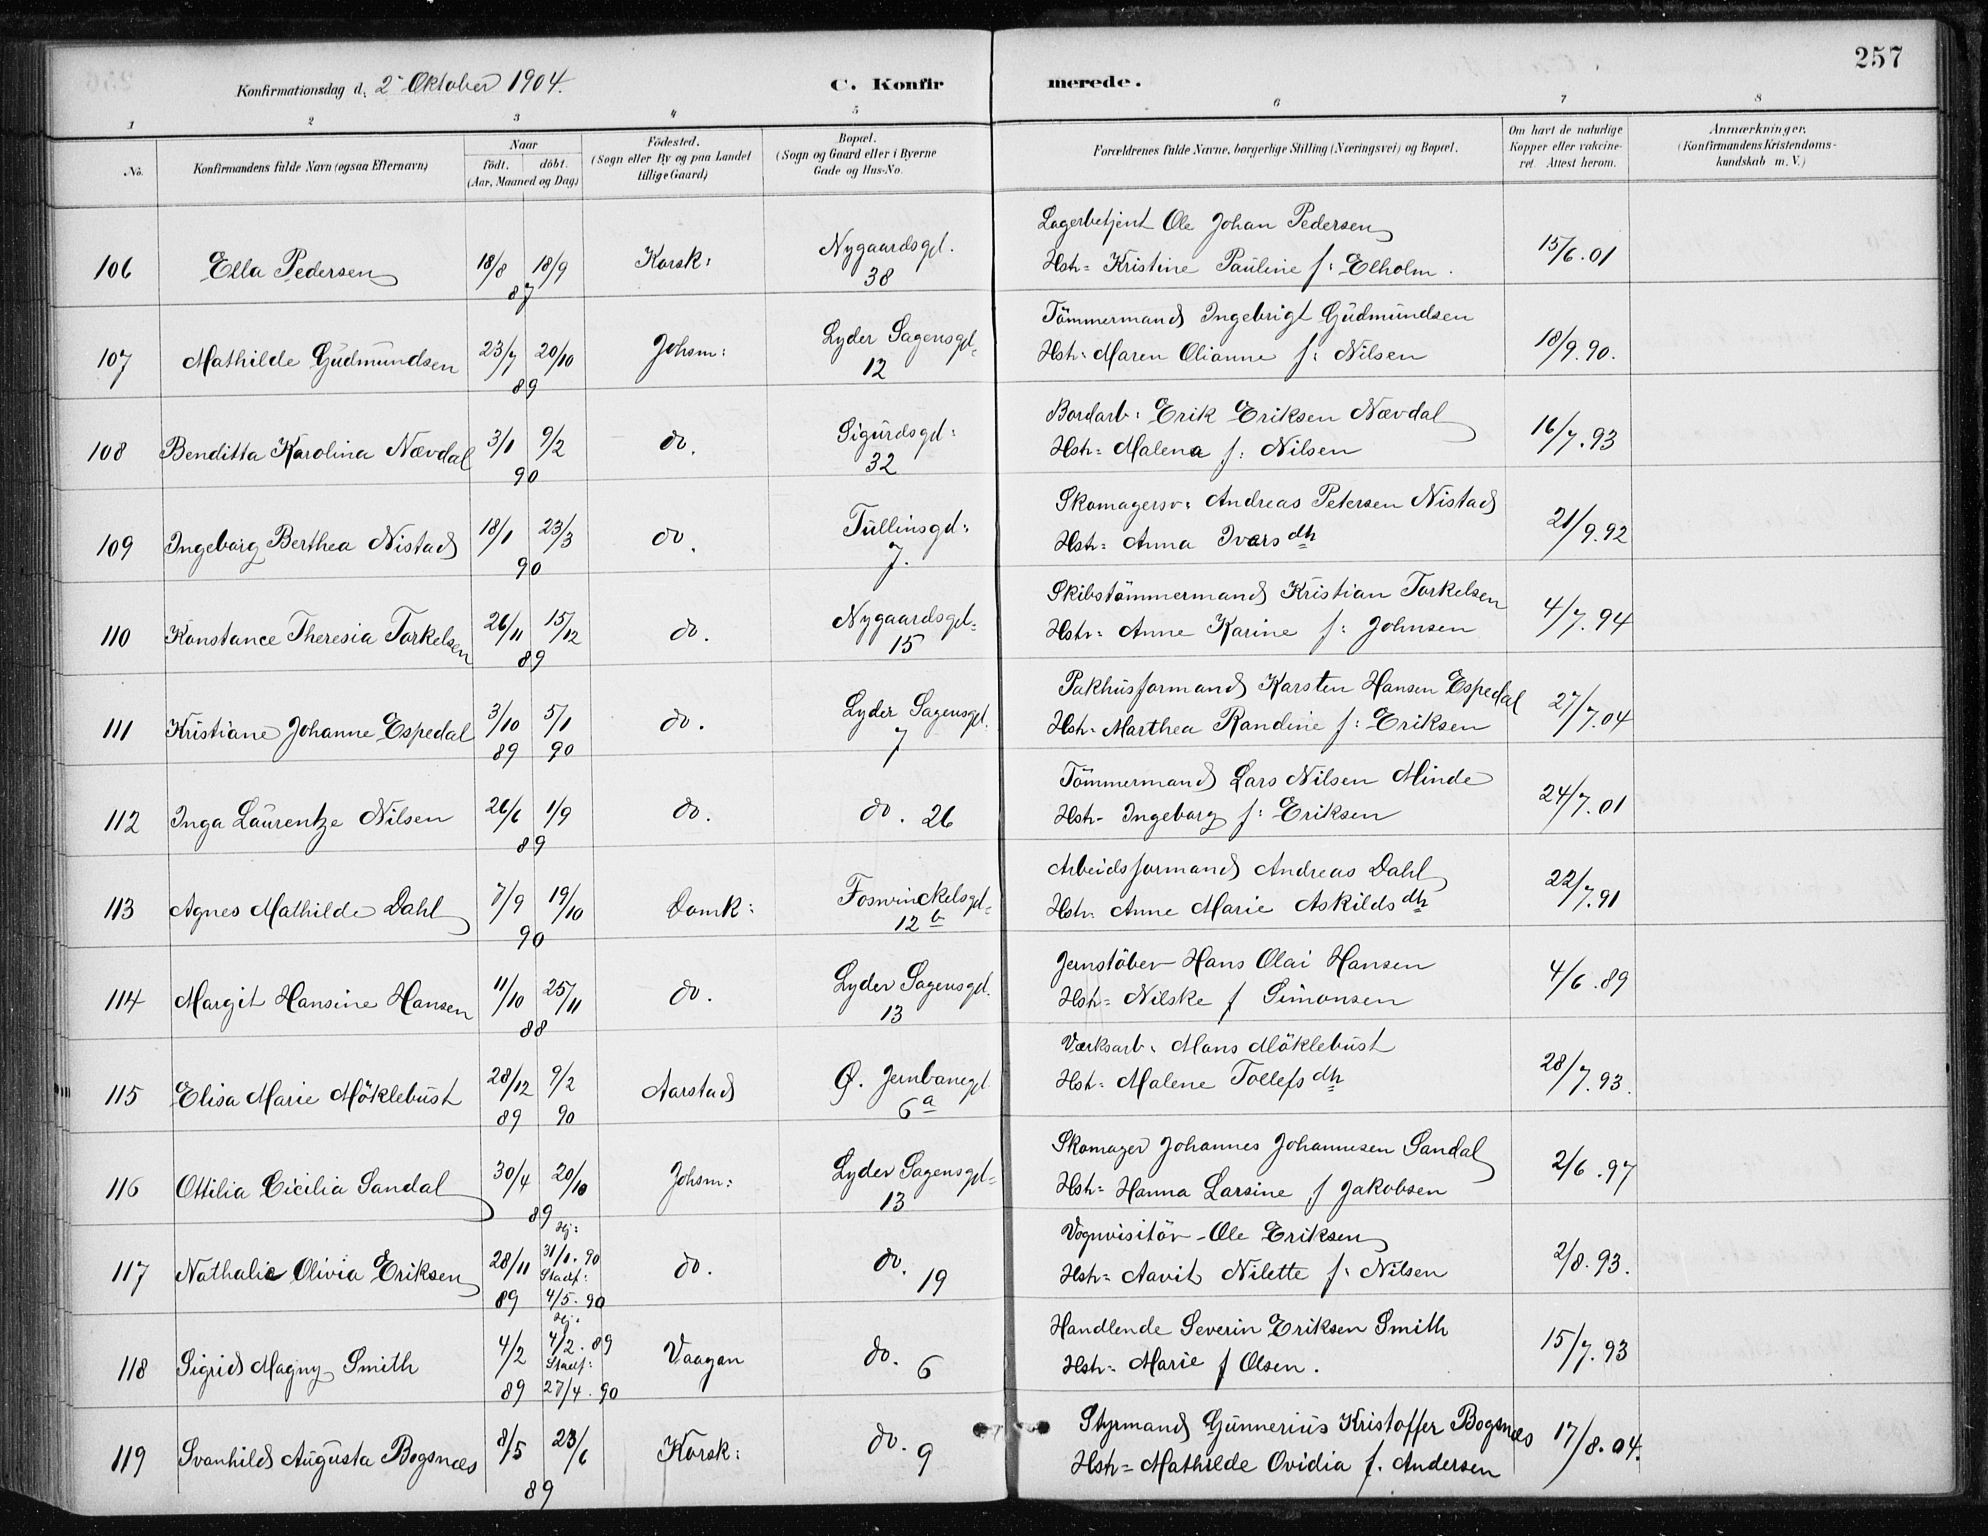 257
Konfirmationsdag d. 2 Oktober 1904.
C. Konfirmerede.
1 2 3 4 5 6 7 8
No.
Konfirmandens fulde Navn (ogsaa Efternavn)
Naar
födt. döbt.
(Aar, Maaned og Dag)
Födested.
(Sogn eller By og paa Landet
tillige Gaard)
Bopæl.
(Sogn og Gaard eller i Byerne
Gade og Hus-No.
Forældrenes fulde Navne, borgerlige Stilling (Næringsvei) og Bopæl.
Om havt de naturlige
Kopper eller vakcine-
ret. Attest herom.
Anmærkninger.
(Konfirmandens Kristendoms-
kundskab m. V.)
106 Ella Pedersen 18/8 18/9 87 Korsk: Nygaardsgd. 38
Lagerbetjent Ole Johan Pedersen
Hstr: Kristine Pauline f: Elholm.
15/6.01
107 Mathilde Gudmundsen 23/7 20/10 89 Johsm: Lyder Sagensgd: 12
Tömmermand Ingebrigt Gudmundsen
Hstr: Maren Olianne f: Nilsen
18/9.90.
108 Benditta Karolina Nævdal 3/1 9/2 90 do. Sigurdsgd: 32
Bordarb: Erik Eriksen Nævdal
Hstr: Malena f: Nilsen
16/7.93
109 Ingeborg Berthea Nistad 18/1 23/3 90 do. Tullinsgd: 7.
Skomagersv: Andreas Petersen Nistad
Hstr: Anna Ivers dtr
21/9.92
110 Konstance Theresia Torkelsen 26/11 15/12 89 do. Nygaardsgd: 15
Skibstömmermand Kristian Torkelsen
Hstr: Anne Karine f: Johnsen
4/7.94
111 Kristiane Johanne Espedal 3/10 89 5/1 90 do. Lyder Sagensgd. 7
Pakhusformand Karsten Hansen Espedal
Hstr: Marthea Randine f: Eriksen
27/7.04
112 Inga Laurentze Nilsen 26/6 1/9 89 do. do. 26
Tömmermand Lars Nilsen Minde
Hstr: Ingeborg f: Eriksen
24/7.01
113 Agnes Mathilde Dahl 7/9 19/10 90 Domk: Foswinckelsgd: 12 b
Arbeidsformand Andreas Dahl
Hstr: Anne Marie Askilds dtr
22/7.91
114 Margit Hansine Hansen 11/10 25/11 88 do. Lyder Sagensgd. 13
Jernstöber Hans Olai Hansen
Hstr: Nilske f Simonsen
4/6.89
115 Elisa Marie Möklebust 28/12 89 9/2 90 Aarstad Ø. Jernbanegd 6 a
Værksarb: Mons Möklebust
Hstr: Malene Tollefs dtr
28/7.93.
116 Ottilia Cicilia Sandal 30/4 20/10 89 Johsm: Lyder Sagensgd: 13
Skomager Johannes Johannesen Sandal
Hstr: Hanna Larsine f Jakobsen
2/6.97
117 Nathalie Olivia Eriksen 28/11 89 Hj: 31/1.90 Stadf: 4/5.90 do. do. 19
Vognvisitör Ole Eriksen
Hstr: Aavit Nilette f: Nilsen
2/8.93.
118 Sigrid Magny Smith 4/2 89 Hj: 4/2.89 Stadf: 27/4.90 Vaagan do. 6
Handlende Severin Eriksen Smith
Hstr: Marie f Olsen.
15/7.93
119 Svanhild Augusta Bogsnæs 8/5 23/6 89 Korsk: do. 9
Styrmand Gunnerius Kristoffer Bogsnæs
Hstr: Mathilde Ovidia f. Andersen
17/8.04.